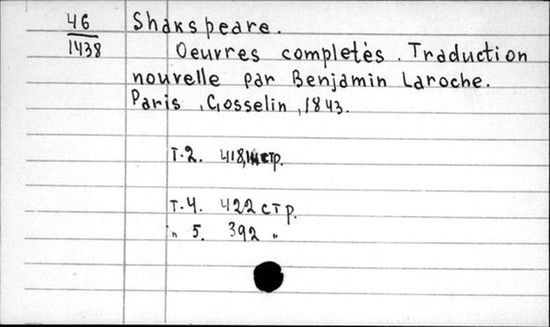 46
1438
Shakspeare.
Oeuvres completès. Traduction
nouvelle par Benjamin Laroche.
Paris, Gosselin, 1843.
Т.2. 418, стр.
Т.4. 422 стр.
" 5. 392 "